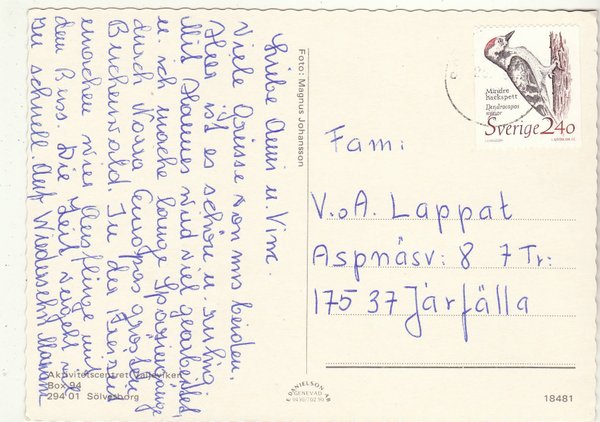 Liebe Anni u. Vinc.
Viele Grüsse von uns beiden.
Hier ist es schön u. ruhig
Mit Hannes wird viel gearbeitet,
u. ich mache lange Spaziergänge
durch Norra Europas grössten
Buchenwald. In der Freizeit
machen wir Ausflüge mit
dem Buss. Die Zeit vergeht viel
zu schnell. Auf Wiedersehn
Foto: Magnus Johansson
Aktivitetscentret Valjeviken
Box 94
294 01 Sölvesborg
E. DANIELSON AB
GENEVAD
0430/702 90
Mindre
Hackspett
Dendrocopos
minor
Sverige 240
Fam:
V.o A. Lappat
Aspnäsv: 8 7 Tr:
175 37 Järfälla
18481